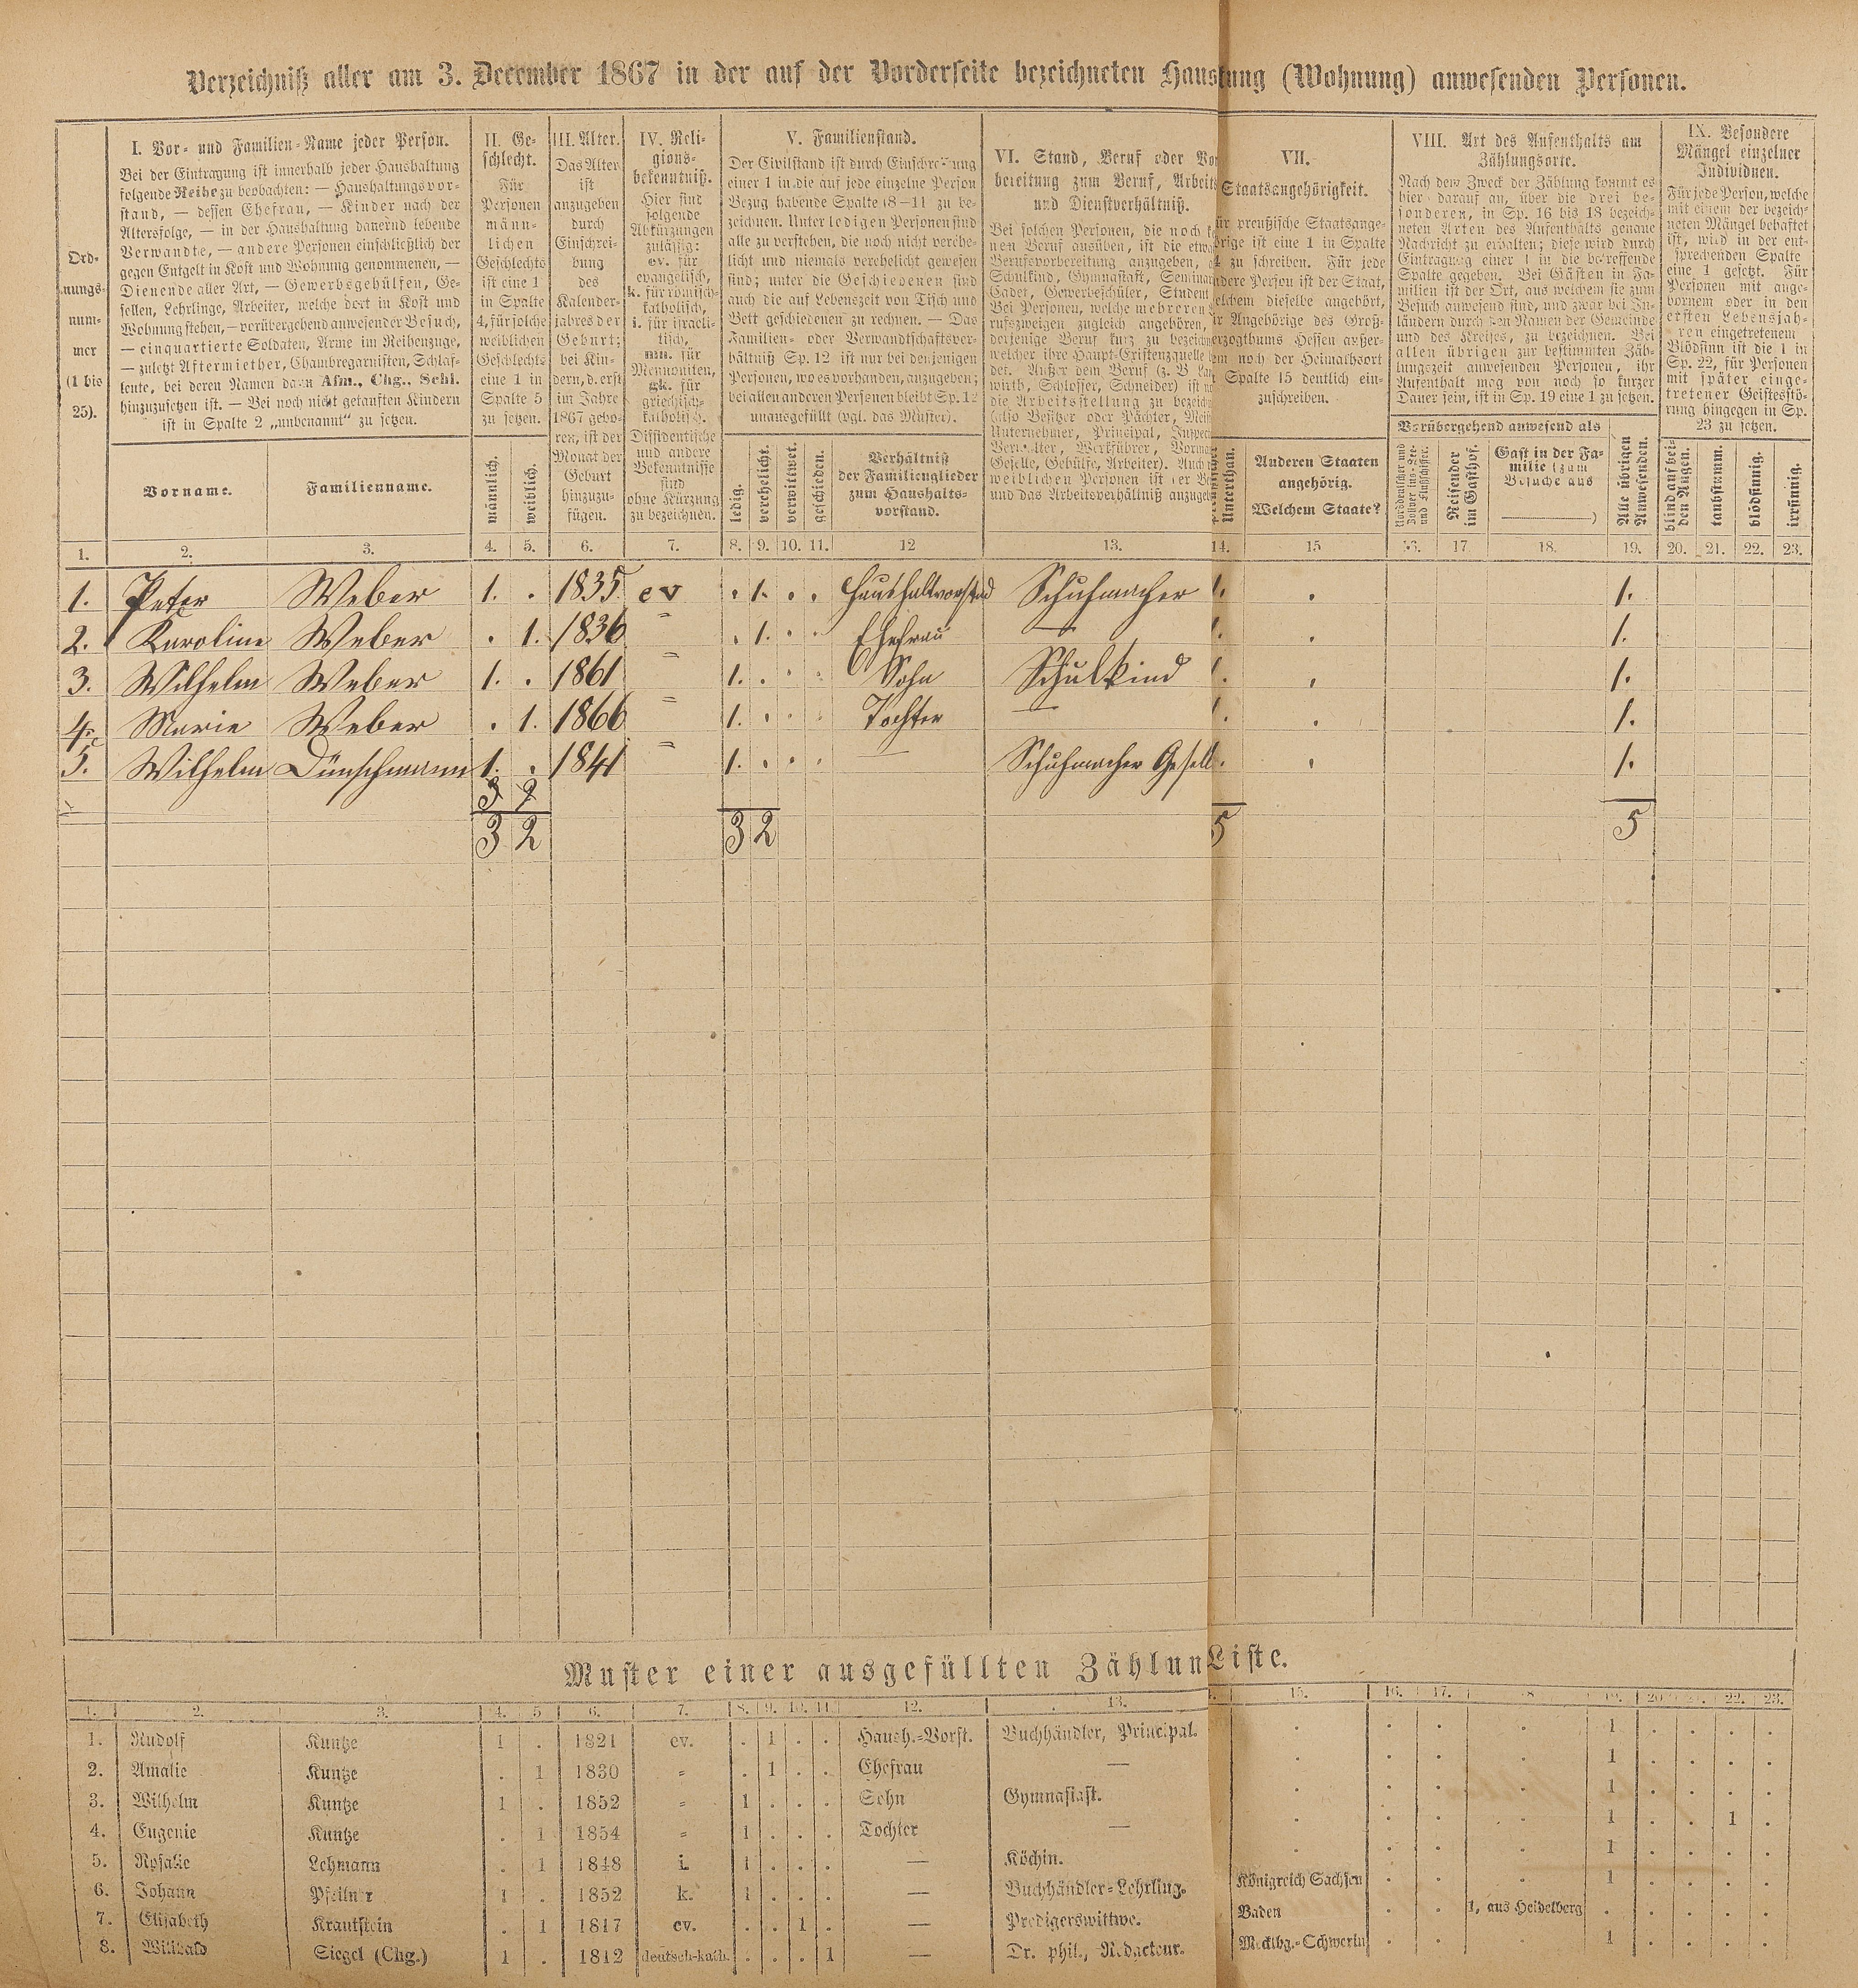 Verzeichniß aller am 3. December 1867 in der auf der Vorderseite bezeichneten Haus tung (Wohnung) anwesenden Personen.
Ord-
nungs-
num-
mer
(1 bis
25).
I. Vor- und Familien-Name jeder Person.
Bei der Eintragung ist innerhalb jeder Haushaltung
folgende Reihe zu beobachten: — Haushaltungsvor-
stand, — dessen Ehefrau, — Kinder nach der
Altersfolge, — in der Haushaltung dauernd lebende
Verwandte, — andere Personen einschließlich der
gegen Entgelt in Kost und Wohnung genommenen, —
Dienende aller Art, — Gewerbsgehülfen, Ge-
sellen, Lehrlinge, Arbeiter, welche dort in Kost und
Wohnung stehen, — vorübergehend anwesender Besuch,
— einquartierte Soldaten, Arme im Reihenzuge,
— zuletzt Aftermiether, Chambregarnisten, Schlaf-
leute, bei deren Namen dann Afm., Chg., Schl.
hinzuzusetzen ist. — Bei noch nicht getauften Kindern
ist in Spalte 2 „unbenannt“ zu setzen.
Vorname.
Familienname.
II. Ge-
schlecht.
Für
Personen
männ-
lichen
Geschlechts
ist eine 1
in Spalte
4, für solche
weiblichen
Geschlechts
eine 1 in
Spalte 5
zu setzen.
männlich.
weiblich.
III. Alter.
Das Alter
ist
anzugeben
durch
Einschrei-
bung
des
Kalender-
jahres der
Geburt;
bei Kin-
dern, d. erst
im Jahre
1867 gebo-
ren, ist der
Monat der
Geburt
hinzuzu-
fügen.
IV. Reli-
gions-
bekenntniß.
Hier sind
folgende
Abkürzungen
zulässig:
ev. für
evangelisch,
k. für römisch-
katholisch,
i. für israeli-
tisch,
mn. für
Mennoniten,
gk. für
griechisch-
katholisch.
Dissidentische
und andere
Bekenntnisse
sind
ohne Kürzung
zu bezeichnen.
V. Familienstand.
Der Civilstand ist durch Einschreibung
einer 1 in die auf jede einzelne Person
Bezug habende Spalte (8–11) zu be-
zeichnen. Unter ledigen Personen sind
alle zu verstehen, die noch nicht verehe-
licht und niemals verehelicht gewesen
sind; unter die Geschiedenen sind
auch die auf Lebenszeit von Tisch und
Bett geschiedenen zu rechnen. — Das
Familien- oder Verwandtschaftsver-
hältniß Sp. 12 ist nur bei denjenigen
Personen, wo es vorhanden, anzugeben;
bei allen anderen Personen bleibt Sp. 12
unausgefüllt (vgl. das Muster).
ledig.
verehelicht.
verwittwet.
geschieden.
Verhältniß
der Familienglieder
zum Haushalts-
vorstand.
VI. Stand, Beruf oder Vor
bereitung zum Beruf, Arbeits
und Dienstverhältniß.
Bei solchen Personen, die noch k
nen Beruf ausüben, ist die etwa
Berufsvorbereitung anzugeben,
Schulkind, Gymnasiast, Seminar
Cadet, Gewerbeschüler, Student
Bei Personen, welche mehreren
rufszweigen zugleich angehören,
derjenige Beruf kurz zu bezeichn
welcher ihre Haupt-Existenzquelle
det. Außer dem Beruf (z. B. Lan
wirth, Schlosser, Schneider) ist
die Arbeitsstellung zu bezeich
(also Besitzer oder Pächter, Meis
Unternehmer, Principal, Inspec
Verwalter, Werkführer, Vorma
Geselle, Gehülfe, Arbeiter). Auch
weiblichen Personen ist der Be
und das Arbeitsverhältniß anzugeb
VII.
Staatsangehörigkeit.
ür preußische Staatsange-
örige ist eine 1 in Spalte
4 zu schreiben. Für jede
ndere Person ist der Staat,
elchem dieselbe angehört,
r Angehörige des Groß-
erzogthums Hessen außer-
em noch der Heimathsort
Spalte 15 deutlich ein-
zuschreiben.
Unterthan.
Anderen Staaten
angehörig.
Welchem Staate?
VIII. Art des Aufenthalts am
Zählungsorte.
Nach dem Zweck der Zählung kommt es
hier darauf an, über die drei be-
sonderen, in Sp. 16 bis 18 bezeich-
neten Arten des Aufenthalts genaue
Nachricht zu erhalten; diese wird durch
Eintragung einer 1 in die betreffende
Spalte gegeben. Bei Gästen in Fa-
milien ist der Ort, aus welchem sie zum
Besuch anwesend sind, und zwar bei In-
ländern durch den Namen der Gemeinde
und des Kreises, zu bezeichnen. Bei
allen übrigen zur bestimmten Zäh-
lungszeit anwesenden Personen, ihr
Aufenthalt mag von noch so kurzer
Dauer sein, ist in Sp. 19 eine 1 zu setzen.
Vorübergehend anwesend als
Norddeutscher und
Zollver ins-See-
und Flußschiffer.
Reisender
im Gasthof.
Gast in der Fa-
milie (zum
Besuche aus
)
Alle übrigen
Anwesenden.
IX. Besondere
Mängel einzelner
Individuen.
Für jede Person, welche
mit einem der bezeich-
neten Mängel behaftet
ist, wird in der ent-
sprechenden Spalte
eine 1 gesetzt. Für
Personen mit ange-
bornem oder in den
ersten Lebensjah-
ren eingetretenem
Blödsinn ist die 1 in
Sp. 22, für Personen
mit später einge-
tretener Geistesstö-
rung hingegen in Sp.
23 zu setzen.
blind auf bei-
den Augen.
taubstumm.
blödsinnig.
irrsinnig.
1. 2. 3. 4. 5. 6. 7. 8. 9. 10. 11. 12 13. 14. 15 16. 17 18. 19. 20. 21. 22. 23.
1. Peter Weber 1. . 1835. ev . 1. . . Haushaltvorstand Schuhmacher 1. . 1.
2. Karoline Weber . 1. 1836 " . 1. . . Ehefrau — 1. . 1.
3. Wilhelm Weber 1. . 1861 " 1. . . . Sohn Schulkind 1. . 1.
4. Marie Weber . 1. 1866 " 1. . . . Tochter — 1. . 1.
5. Wilhelm Dünschmann 1. . 1841 " 1. . . . — Schuhmacher Gesell . . 1.
3 2
3 2 3 2 5 5
Muster einer ausgefüllten Zählun Liste.
1. 2. 3. 4. 5 6. 7. 8. 9. 10. 11. 12. 13. 15. 16. 17. 18 19. 20 21. 22. 23.
1. Rudolf Kuntze 1 . 1821 ev. . 1 . . Haush.-Vorst. Buchhändler, Principal. . . . . 1 . . . .
2. Amalie Kuntze . 1 1830 = . 1 . . Ehefrau — . . . . 1 . . . .
3. Wilhelm Kuntze 1 . 1852 = 1 . . . Sohn Gymnasiast. . . . . 1 . . . .
4. Eugenie Kuntze . 1 1854 = 1 . . . Tochter — . . . . 1 . . 1 .
5. Rosalie Lehmann . 1 1848 i. 1 . . . — Köchin. . . . . 1 . . . .
6. Johann Pfeilner 1 . 1852 k. 1 . . . — Buchhändler-Lehrling. Königreich Sachsen . . . 1 . . . .
7. Elisabeth Krautstein . 1 1817 ev. . . 1 . — Predigerswittwe. Baden . . 1, aus Heidelberg . . . . .
8. Willibald Siegel (Chg.) 1 . 1812 deutsch-kath. . . . 1 — Dr. phil., Redacteur. Mecklbg.-Schwerin . . . 1 . . . .